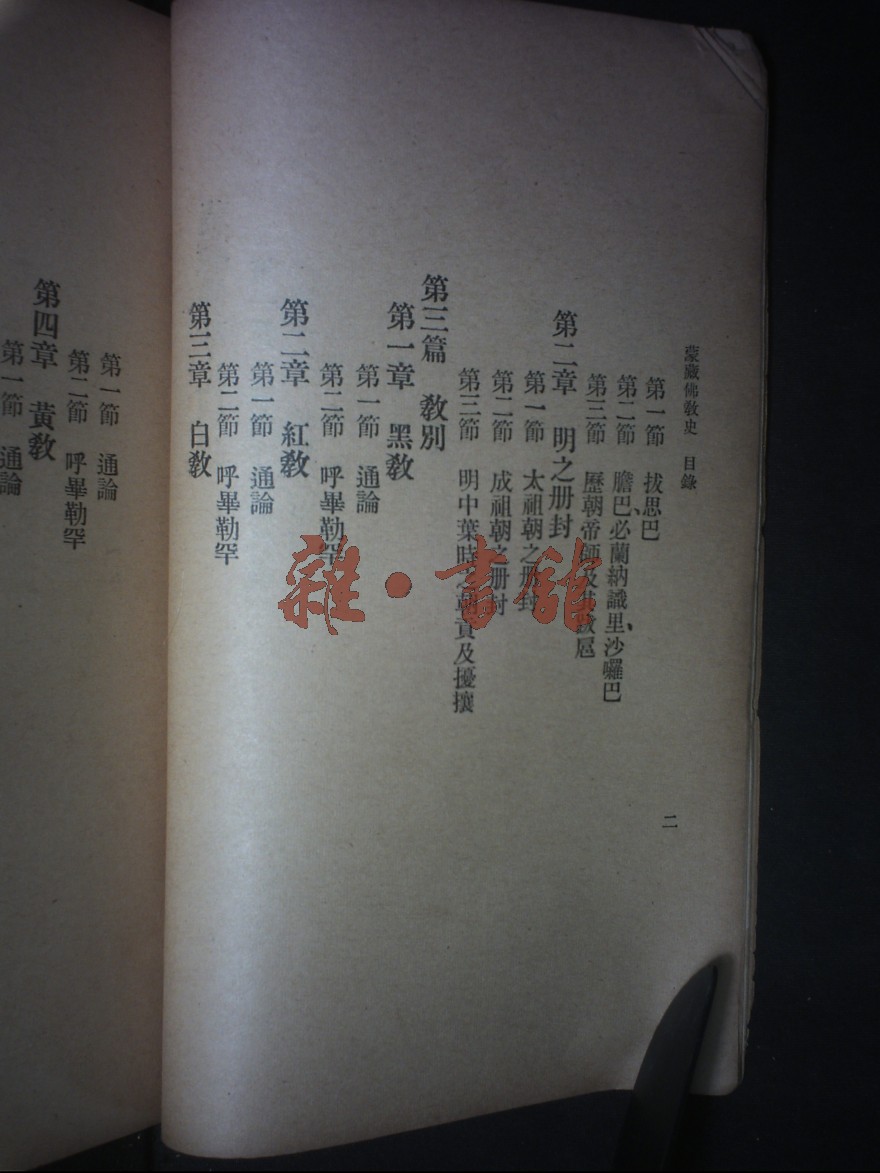 蒙藏佛敎史 目錄
第一節 拔思巴
第二節 膽巴、必蘭納識里、沙囉巴
第三節 歷朝帝師及其
第二章 明之册封
第一節 太祖朝之册封
第二節 成祖朝之册封
第三節 明中葉時之朝貢及擾攘
第三篇 敎別
第一章 黑敎
第一節 通論
第二節 呼畢勒罕
第二章 紅敎
第一節 通論
第二節 呼畢勒罕
第三章 白敎
二
第一節 通論
第二節 呼畢勒罕
第四章 黃敎
第一節 通論
雜·書館